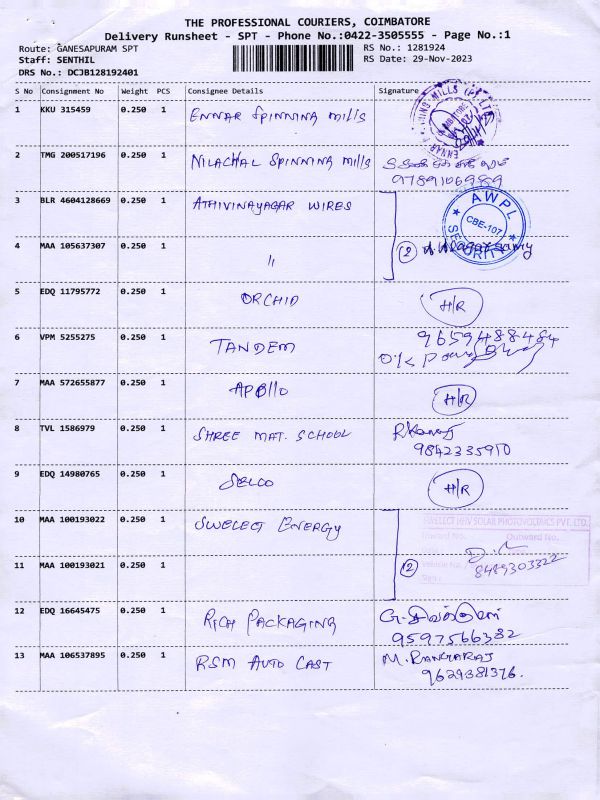 THE PROFESSIONAL COURIERS, COIMBATORE
Delivery Runsheet - SPT - Phone No.:0422-3505555 - Page No.:1
Route: GANESAPURAM SPT
RS No.: 1281924
Staff: SENTHIL
RS Date: 29-Nov-2023
DRS No.: DCJB128192401
S No Consignment No Weight PCS Consignee Details Signature
1 KKU 315459 0.250 1 ENNAR SPINNING Mills
2 TMG 200517196 0.250 1 NILACHAL SPINNING Mills
9789106989
3 BLR 4604128669 0.250 1 ATHIVINAYAGAR WIRES
AWPL
CBE-107
SECURITY
4 MAA 105637307 0.250 1 " 2
5 EDQ 11795772 0.250 1 ORCHID H/R
6 VPM 5255275 0.250 1 TANDEM 9659488484
7 MAA 572655877 0.250 1 APOLLO H/R
8 TVL 1586979 0.250 1 SHREE MAT. SCHOOL
9842335910
9 EDQ 14980765 0.250 1 SELCO H/R
10 MAA 100193022 0.250 1 SWELECT ENERGY
SWELECT HHV SOLAR PHOTOVOLTAICS PVT. LTD.
Inward No. Outward No.
11 MAA 100193021 0.250 1 2
Vehicle No. 8489303322
Sign :
12 EDQ 16645475 0.250 1 RICH PACKAGING
9597566382
13 MAA 106537895 0.250 1 RSM AUTO CAST M. RANGARAJ
9629381376.